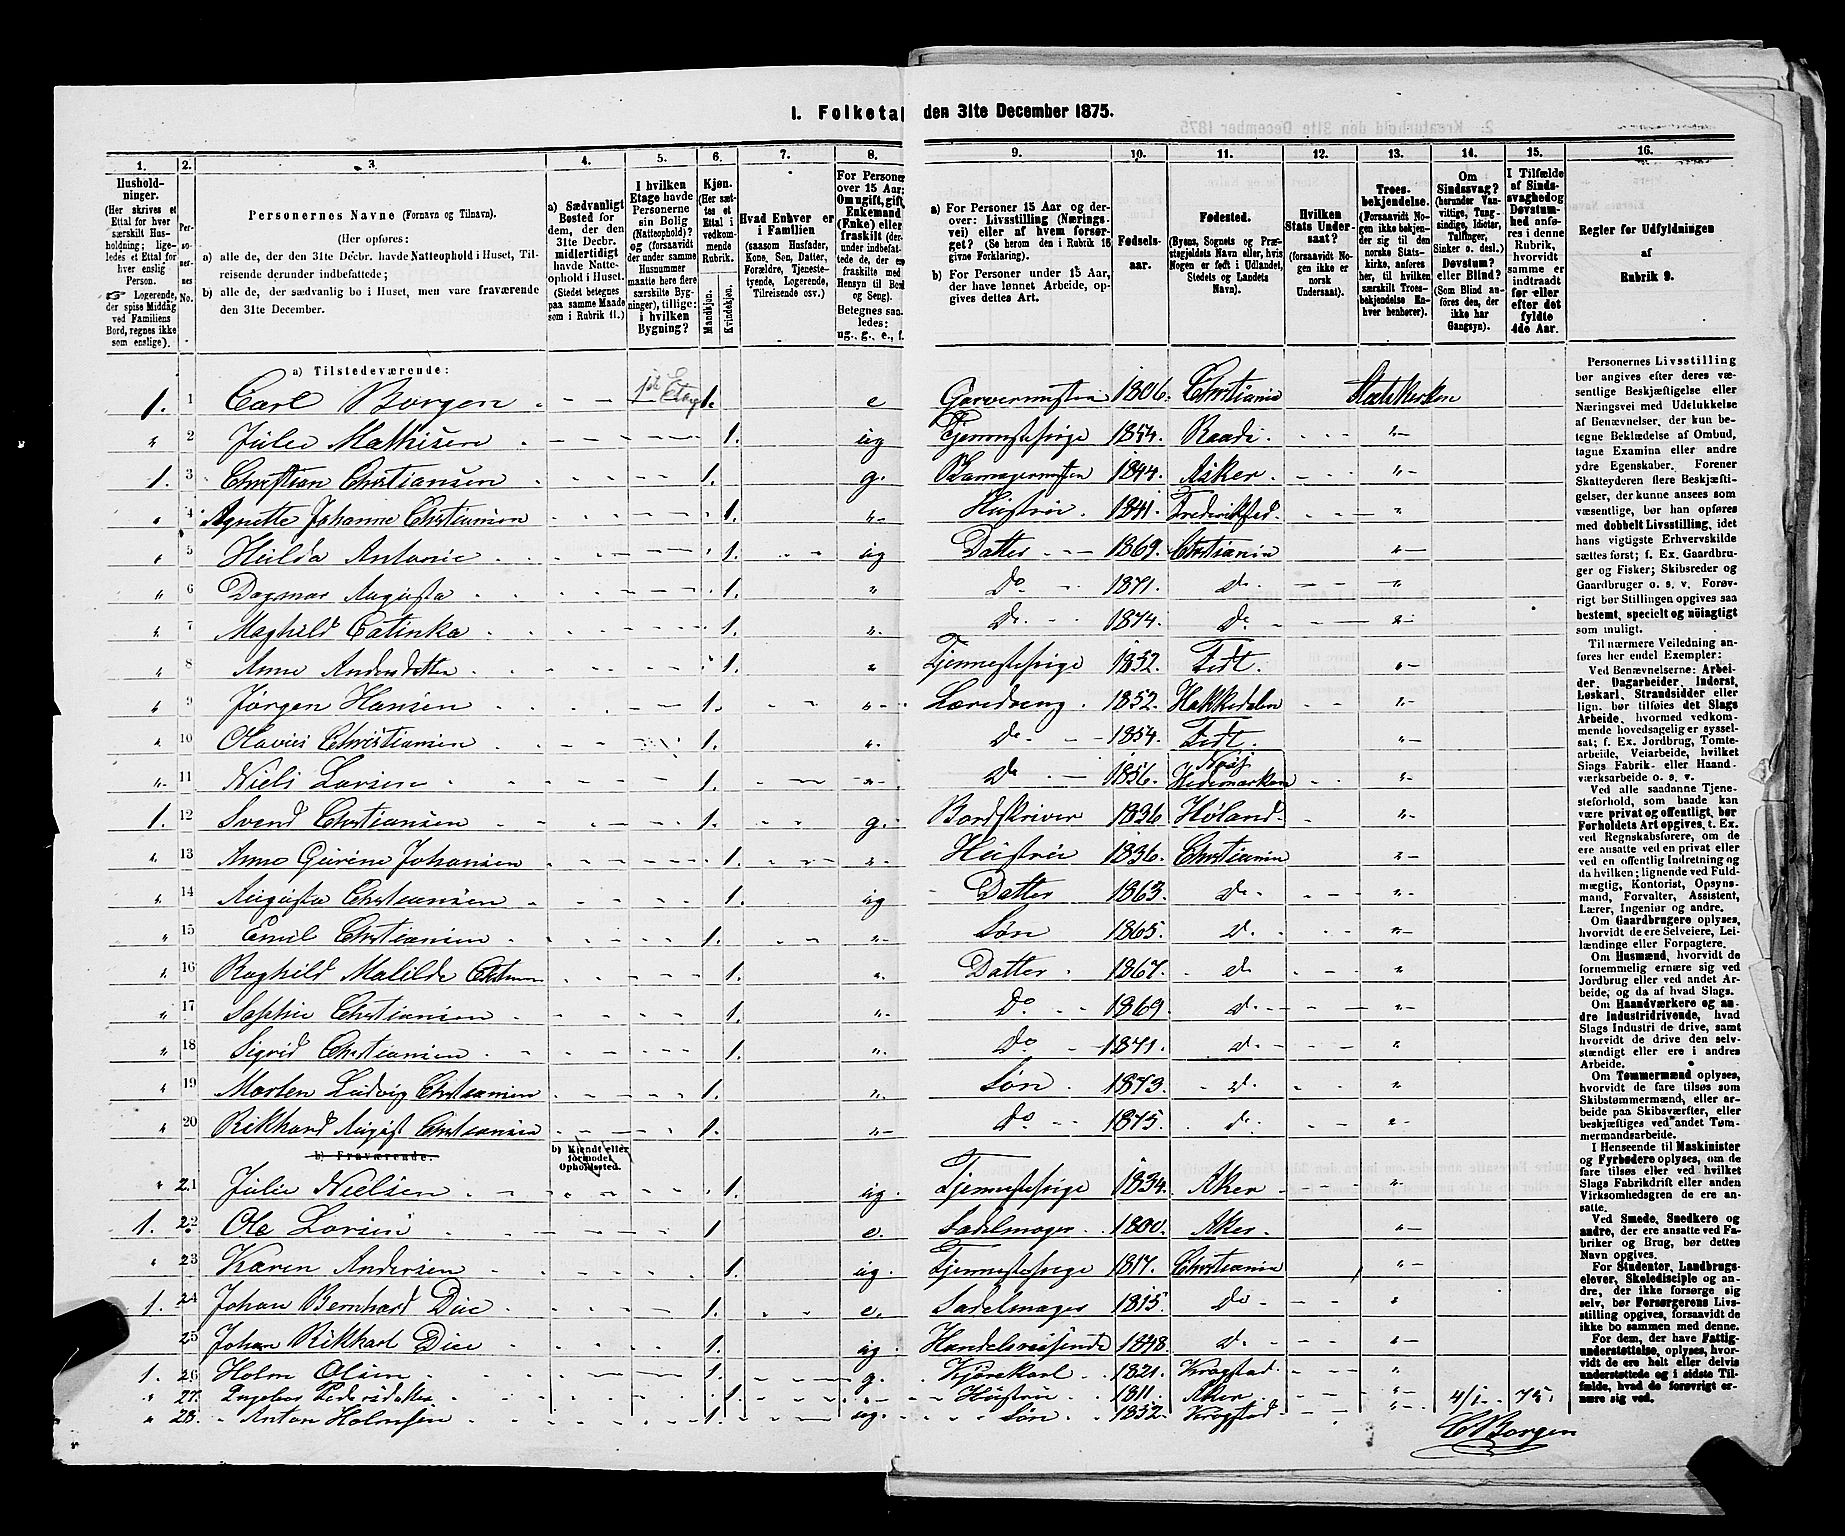 1. Folketal den 31te December 1875.
1. 2. 3. 4. 5. 6. 7. 8. 9. 10. 11. 12. 13. 14. 15. 16.
Husholdninger. (Her skrives et Ettal for hver særskilt Husholdning; ligeledes et Ettal for hver enslig Person. ☞ Logerende, der spise Middag ved Familiens Bord, regnes ikke som enslige).
Personernes No.
Personernes Navne (Fornavn og Tilnavn).
(Her opføres:
a) alle de, der den 31te Decbr. havde Natteophold i Huset, Tilreisende derunder indbefattede;
b) alle de, der sædvanlig bo i Huset, men vare fraværende den 31te December.
a) Sædvanligt Bosted for dem, der den 31te Decbr. midlertidigt havde Natteophold i Huset (Stedet betegnes paa samme Maade som i Rubrik 11.)
I hvilken Etage havde Personerne sin Bolig (Natteophold)? og (forsaavidt der under samme Husnummer maatte høre flere særskilte Bygninger), tillige: i hvilken Bygning?
Kjøn. (Her sættes et Ettal i vedkommende Rubrik.
Mandkjøn. Kvindekjøn.
Hvad Enhver er i Familien (saasom Husfader, Kone, Søn, Datter, Forældre, Tjenestetyende, Logerende, Tilreisende osv.)
For Personer over 15 Aar: Om ugift, gift, Enkemand (Enke) eller fraskilt
Betegnes saaledes: ug., g., e., f.
a) For Personer 15 Aar og derover: Livsstilling (Næringsvei) eller af hvem forsørget? (Se herom den i Rubrik 16 givne Forklaring).
b) For Personer under 15 Aar, der have lønnet Arbeide, opgives dettes Art.
Fødselsaar.
Fødested. (Byens, Sognets og Præstegjeldets Navn eller, hvis Nogen er født i Udlandet, Stedets og Landets Navn).
Hvilken Stats Undersaat? (forsaavidt Nogen ikke er norsk Undersaat).
Troesbekjendelse. (Forsaavidt Nogen ikke bekjender sig til den norske Statskirke, anføres her, til hvilken særskilt Troesbekjendelse Enhver henhører).
Om Sindssvag? (herunder Vanvittige, Tungsindige, Idioter, Tullinger, Sinker o. desl.) Døvstum? eller Blind? (Som Blind anføres den, der ikke har Gangsyn).
I Tilfælde af Sindssvaghed og Døvstumhed anføres i denne Rubrik, hvorvidt samme er indtraadt før eller efter det fyldte 4de Aar.
Regler for Udfyldningen af Rubrik 9.
a) Tilstedeværende:
1. 1 Carl Borgen 1ste Etage 1. e Garvermester 1806. Christiania Statskirken
" 2 Julie Mathisen 1. ug Tjenestepige 1854. Raade
1. 3 Christian Christiansen 1. g. 1844. Asker
" 4 Agnette Johanne Christiansen 1. "- Hustru 1841. Frederikstad
" 5 Hulda Antonie 1. ug Datter 1869. Christiania
" 6 Dagmar Augusta 1. " Do 1871. do
" 7 Maghild Catinka 1. "- Do 1874. Do
" 8 Anne Andersdatter 1. " Tjenestepige 1852. Fedt.
" 9 Jørgen Hansen 1. "- Læredreng 1852. Hakkedalen
" 10 Olavus Christiansen 1. " Do 1854. Fedt.
" 11 Niels Larsen 1. "- Do 1856. Hedemarken
1. 12 Svend Christiansen 1. g. Bordskriver 1836 Høland
" 13 Anne Gurine Johansen 1. "- Hustru 1836. Christiania
" 14 Augusta Christiansen 1. ug Datter 1863. do
" 15 Emil Christiansen 1. "- Søn 1865. d.
" 16 Raghild Matilde 1. " Datter 1867. do
" 17 Sophie Christiansen 1. "- Do 1869. do
" 18 Sigrid Christiansen 1. "- Do 1871. do
" 19 Morten Ludvig Christiansen 1. "- Søn 1873. do
" 20 Rikhard August Christiansen 1. "- Do 1875. do
b) Fraværende. b) Kjendt eller formodet Opholdssted.
" 21 Julie Nielsen 1. ug. Tjenestepige 1834. Aker
1. 22 Ole Larsen 1 e. Sadelmager 1800. Aker.
" 23 Karen Andersen 1. ug. Tjenestepige 1817. Christiania
1. 24 Johan Bernhard Due 1. e. Sadelmager 1815. Do
25 Johan Rikhart Due 1. ug Handelsreisende 1848. do
1. 26 Holm Olsen 1. g. Kjørekarl 1821. Krogstad
" 27. Ingeborg Pedersdatter 1. "- Hustru 1811. Aker 4/1 - 75.
" 28. Anton Holmsen 1. ug. Søn 1852. Krogstad
C Borgen
Personernes Livsstilling bør angives efter deres væsentlige Beskjæftigelse eller Næringsvei med Udelukkelse af Benævnelser, der kun betegne Beklædelse af Ombud, tagne Examina eller andre ydre Egenskaber. Forener Skatteyderen flere Beskjæftigelser, der kunne ansees som væsentlige, bør han opføres med dobbelt Livsstilling, idet hans vigtigste Erhvervskilde sættes først; f. Ex. Gaardbruger og Fisker; Skibsreder og Gaardbruger o. s. v. Forøvrigt bør Stillingen opgives saa bestemt, specielt og nøiagtigt som muligt.
Til nærmere Veiledning anføres her endel Exempler:
Ved Benævnelserne: Arbeider, Dagarbeider, Inderst, Løskarl, Strandsidder eller lign. bør tilføies det Slags Arbeide, hvormed vedkommende hovedsagelig er sysselsat; f. Ex. Jordbrug, Tomtearbeide, Veiarbeide, hvilket Slags Fabrik- eller Haandværksarbeide o. s. v.
Ved alle saadanne Tjenesteforhold, som baade kan være privat og offentligt, bør Forholdets Art opgives, t. Ex. ved Regnskabsførere, om de ere ansatte ved en privat eller ved en offentlig Indretning og da hvilken; lignende ved Fuldmægtig, Kontorist, Opsynsmand, Forvalter, Assistent, Lærer, Ingeniør og andre.
Om Gaardbrugere oplyses, hvorvidt de ere Selveiere, Leilændinge eller Forpagtere.
Om Husmænd, hvorvidt de fornemmelig ernære sig ved Jordbrug eller ved andet Arbeide, og da af hvad Slags.
Om Haandværkere og andre Industridrivende, hvad Slags Industri de drive, samt hvorvidt de drive den selvstændigt eller ere i andres Arbeide.
Om Tømmermænd oplyses, hvorvidt de fare tilsøs som Skibstømmermænd, eller arbeide paa Skibsværfter, eller beskjæftiges ved andet Tømmermandsarbeide.
I Henseende til Maskinister og Fyrbødere oplyses, om de fare tilsøs eller ved hvilket Slags Fabrikdrift eller anden Virksomhedsgren de ere ansatte.
Ved Smede, Snedkere og andre, der ere ansatte ved Fabriker og Brug, bør dettes Navn opgives.
For Studenter, Landbrugselever, Skoledisciple og andre, der ikke forsørge sig selv, bør Forsørgerens Livsstilling opgives, forsaavidt de ikke bo sammen med denne.
For dem, der have Fattigunderstøttelse, oplyses, hvorvidt de ere helt eller delvis understøttede og i sidste Tilfælde, hvad de forøvrigt ernære sig ved.